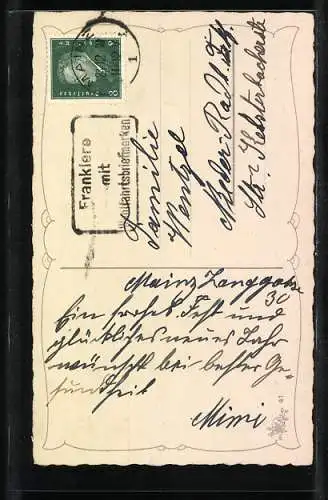 Frankiere
mit
Wohlfahrtsbriefmarken
Familie
Wentzel
Nieder-Rad
Str. Kelsterbacherstr
Mainz Langgasse
30
Ein frohes Fest und
glückliches neues Jahr
wünscht bei bester Ge-
sundheit
Mimi